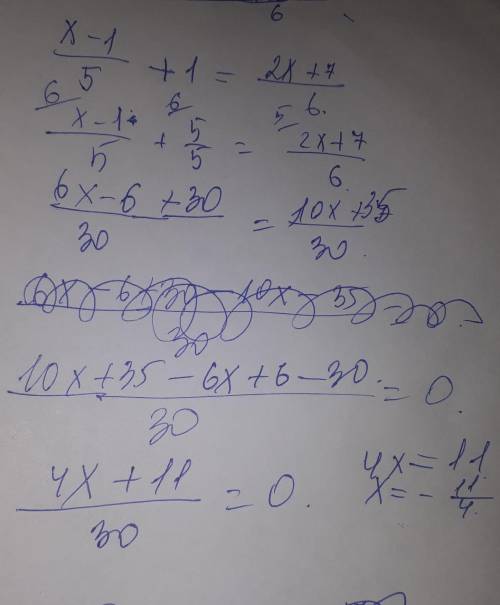 6
(x-1)/5 + 1 = (2x+7)/6.
6 6 5
(x-1)/5 + 5/5 = (2x+7)/6.
(6x-6+30)/30 = (10x+35)/30.
(10x+35-6x+6-30.)/30 = 0.
(4x+11)/30 = 0.
4x=11
x=-11/4.